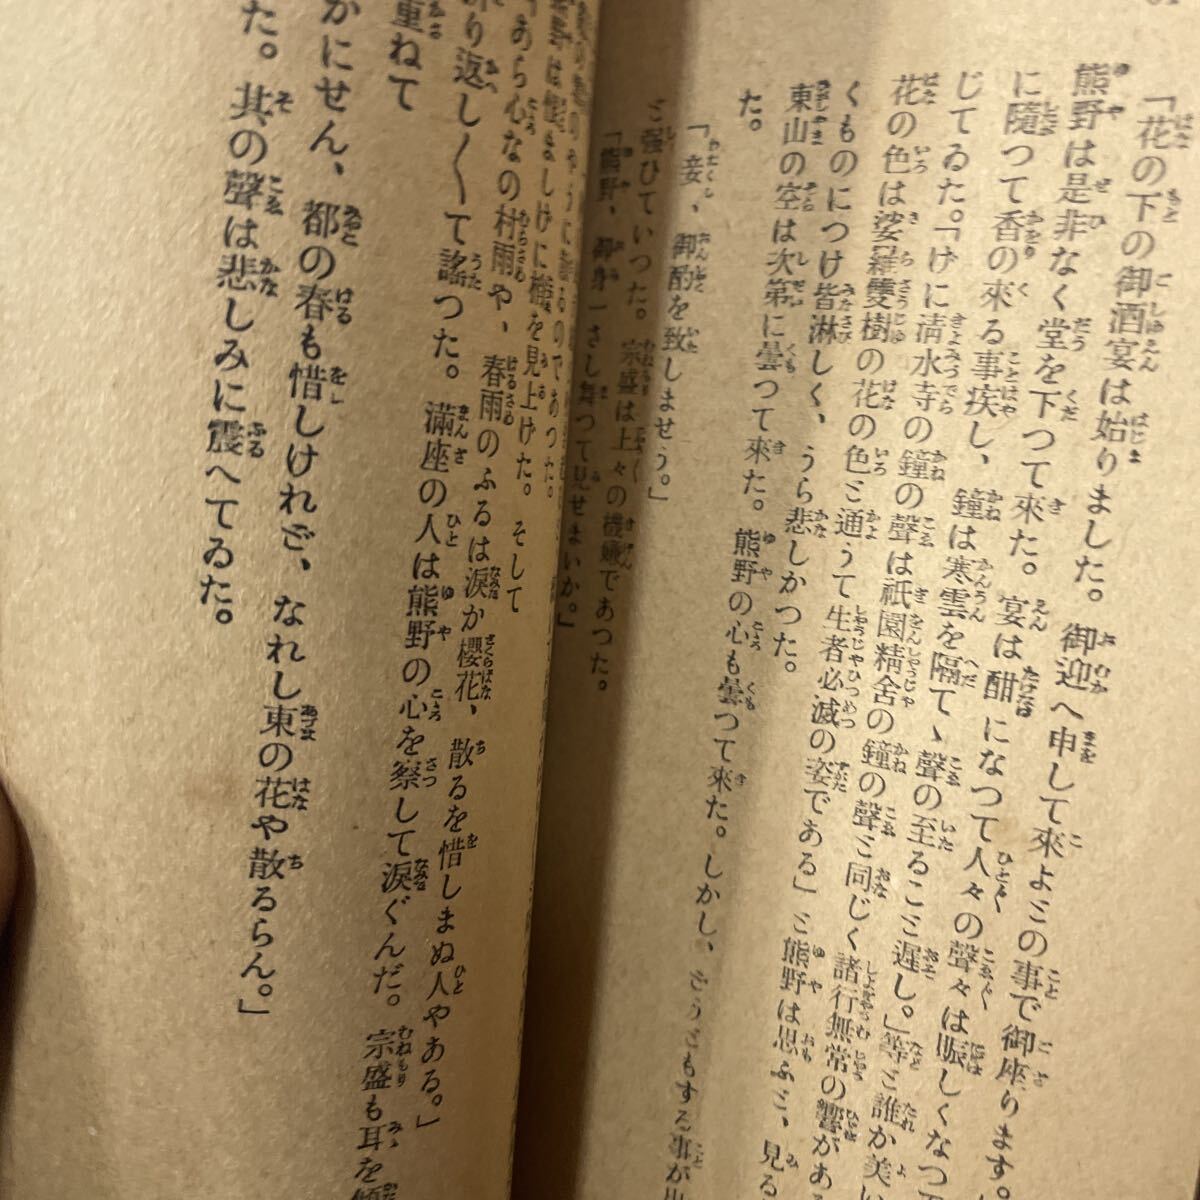 「花の下の御酒宴は始りました。御迎へ申して來よとの事で御座ります。
熊野は是非なく堂を下つて來た。宴は酣になつて人々の聲々は賑しくなつて
に隨つて香の來る事疾し、鐘は寒雲を隔てゝ聲の至ること遲し。」等と誰か美い
じてゐた。「げに淸水寺の鐘の聲は祇園精舍の鐘の聲と同じく諸行無常の響がある
花の色は娑羅雙樹の花の色と通うて生者必滅の姿である」と熊野は思ふと、見る
くものにつけ皆淋しく、うら悲しかつた。
東山の空は次第に曇つて來た。熊野の心も曇つて來た。しかし、どうともする事が出
た。
「妾、御酌を致しませう。」
と强ひていつた。宗盛は上々の機嫌であつた。
「熊野、御身一さし舞つて見せまいか。」
のやうに
野は怪ましげに櫻を見上げた。そして
「あら心なの村雨や、春雨のふるは涙か櫻花、散るを惜しまぬ人やある。」
り返し〱て謠つた。滿座の人は熊野の心を察して涙ぐんだ。宗盛も耳を傾
重ねて
かにせん、都の春も惜しけれど、なれし東の花や散るらん。」
た。其の聲は悲しみに震へてゐた。